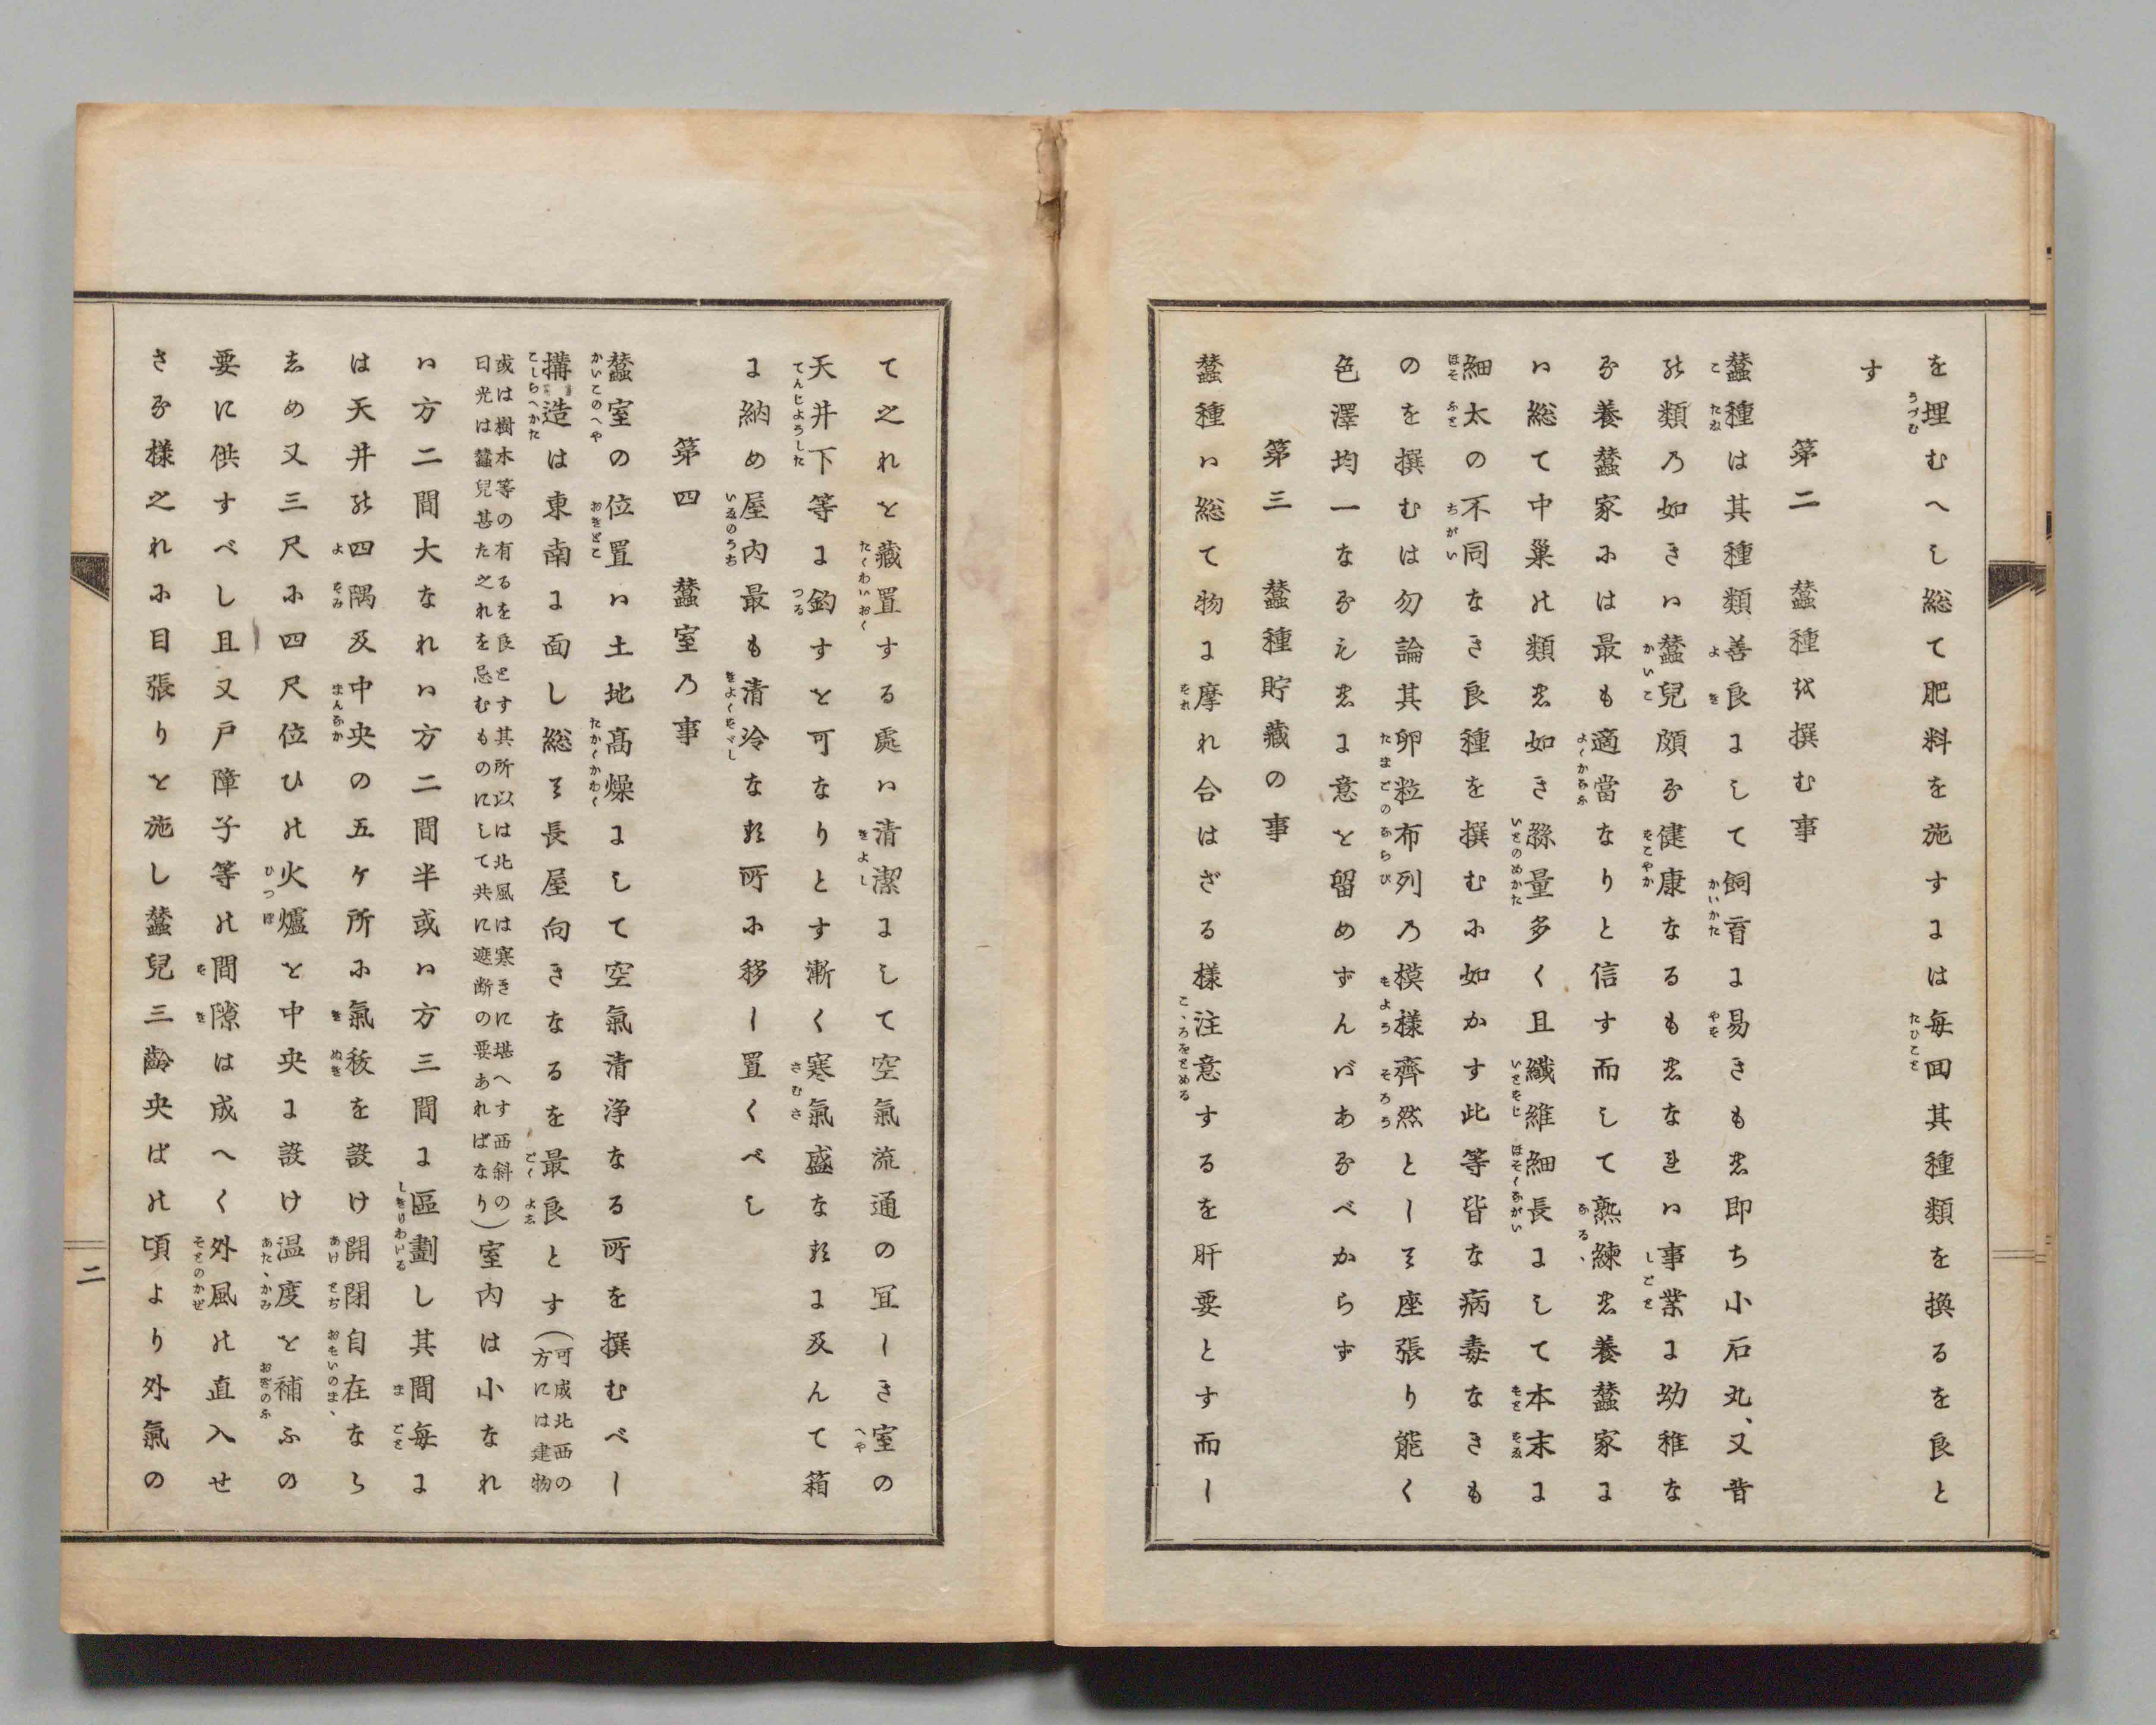 を埋むへし総て肥料を施すには毎囬其種類を換るを良と
す
第二　蠶種を撰む事
蠶種は其種類善良にして飼育に易きも の即ち小石丸、又昔
の類乃如きハ蠶兒頗る健康なるものなれハ事業に幼稚な
る養蠶家には最も適當なりと信す而して熟練の養蠶家に
ハ総て中巣の類の如き繇量多く且纎維細長にして本末に
細太の不同なき良種を撰むに如かす此等皆な病毒なきも
のを撰むは勿論其卵粒布列乃模様齊然としえ座張り能く
色澤均一なるえのに意を留めずんバあるべからず
第三　蠶種貯藏の事
蠶種ハ総て物に摩れ合はざる様注意するを肝要とす而し
て之れを藏置する處ハ清潔にして空氣流通の冝しき室の
天井下等に釣すを可なりとす漸く寒氣盛なるに及んて箱
に納め屋内最も清冷なる所に移し置くべし
第四　蠶室乃事
蠶室の位置ハ土地髙燥にして空氣清浄なる所を撰むべし
搆造は東南に面し総え長屋向きなるを最良とす(可成北西の方には建物
或は樹木等の有るを良とす其所以は北風は寒きに堪へす西斜の
日光は蠶兒甚た之れを忌むものにして共に遮断の要あればなり)室内は小なれ
ハ方二間大なれハ方二間半或ハ方三間に區劃し其間毎に
は天井の四隅及中央の五ケ所に氣秡を設け開閉自在なら
しめ又三尺に四尺位ひの火爐を中央に設け温度を補ふの
要に供すべし且又戸障子等の間隙は成へく外風の直入せ
さる様之れに目張りを施し蠶兒三齡央ばの頃より外氣の
二